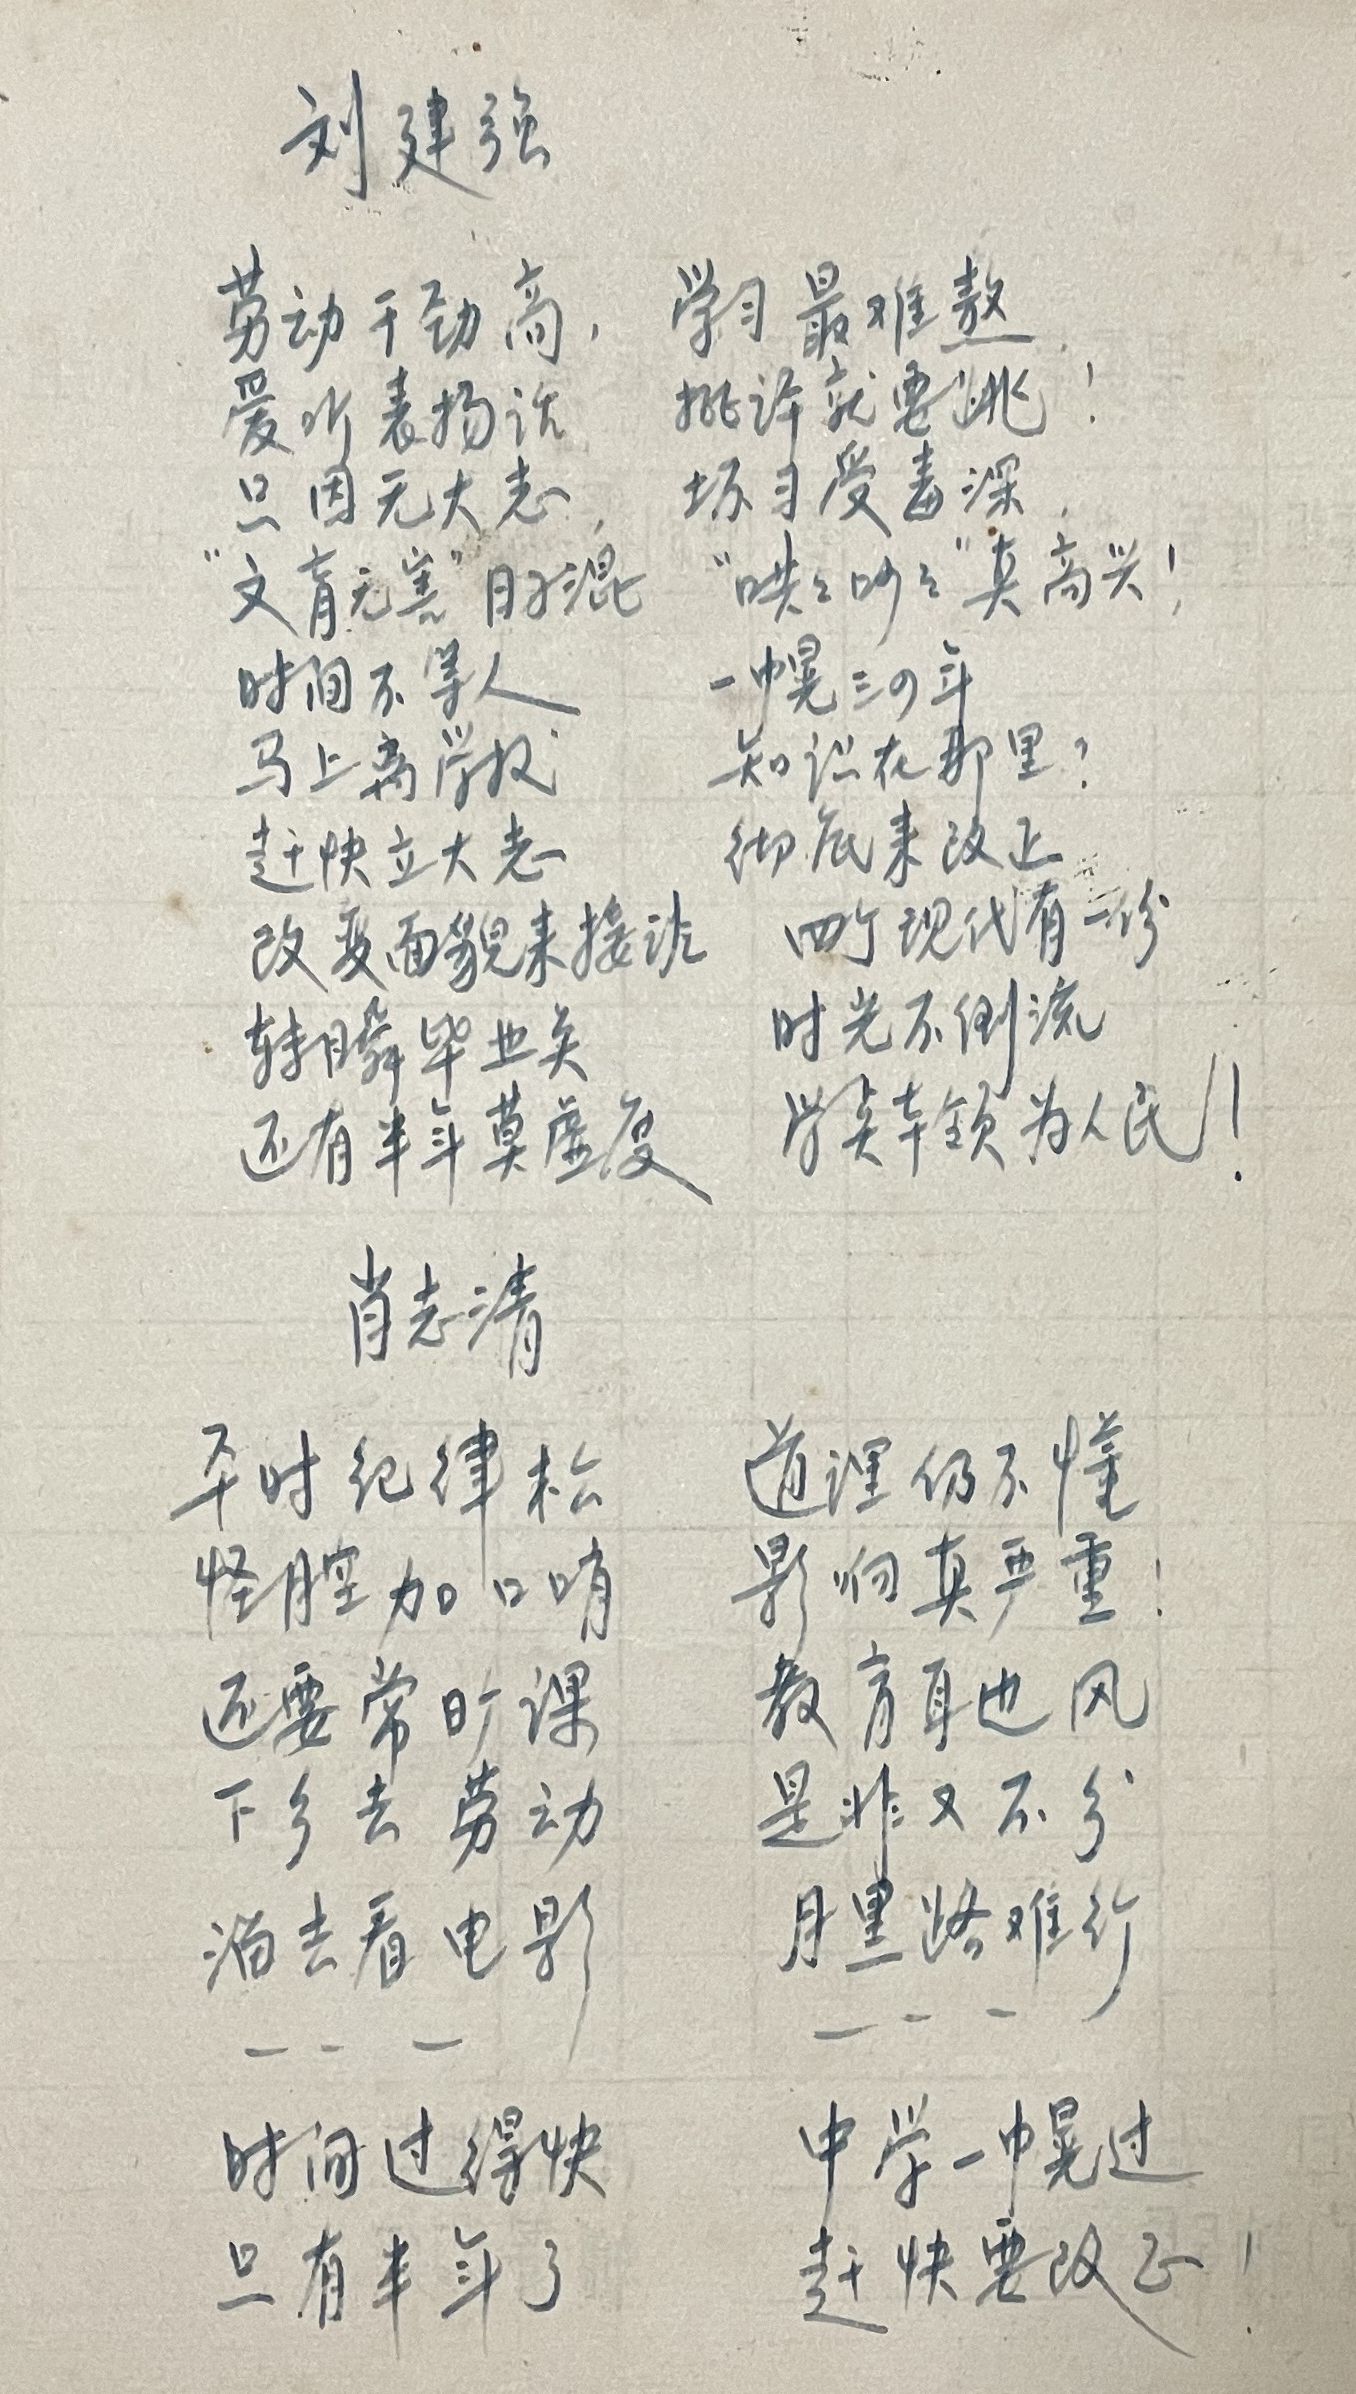 刘建强
劳动干劲高， 学习最难熬
爱听表扬话 批评就要跳！
只因无大志， 坏习受毒深，
“文盲无害”日子混 “哄々吵々”真高兴！
时间不等人 一幌三四年
马上离学校 知识在那里？
赶快立大志 彻底来改正
改变面貌来接班 四个现代有一份
转瞬毕业矣 时光不倒流
还有半年莫虚度 学美本领为人民！
肖志清
平时纪律松 道理仍不懂
怪腔加口哨 影响真严重！
还要常旷课 教育耳边风
下乡去劳动 是非又不分
溜去看电影 月黑路难行
— - — — - —
时间过得快 中学一幌过
只有半年了 赶快要改正！